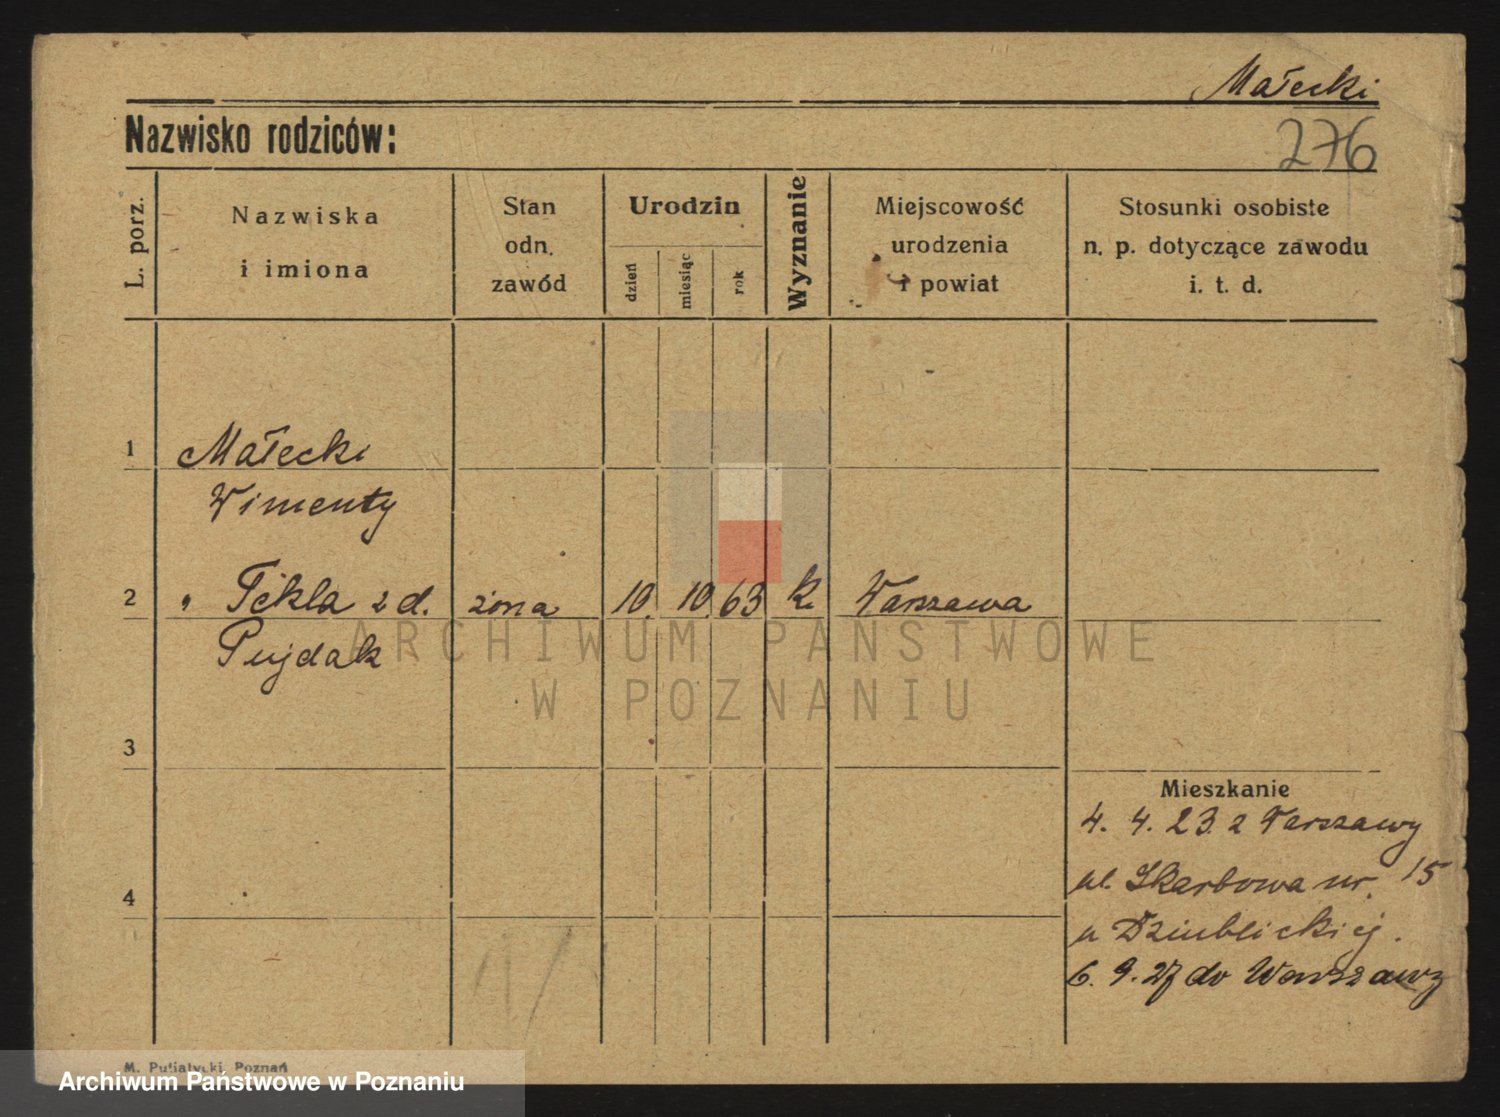 Małecki
Nazwisko rodziców:
276
L. porz.
Nazwiska
i imiona
Stan
odn.
zawód
Urodzin
dzień
miesiąc
rok
Wyznanie
Miejscowość
urodzenia
i powiat
Stosunki osobiste
n. p. dotyczące zawodu
i. t. d.
1 Małecki
Wincenty
2 " Tekla z d. żona 10. 10. 63 k. Warszawa
Pujdak
ARCHIWUM PAŃSTWOWE
W POZNANIU
3
Mieszkanie
4. 4. 23. z Warszawy
ul. Skarbowa nr. 15
4
u Dziublickiej.
6. 9. 27 do Warszawy
M. Putiatycki, Poznań
Archiwum Państwowe w Poznaniu